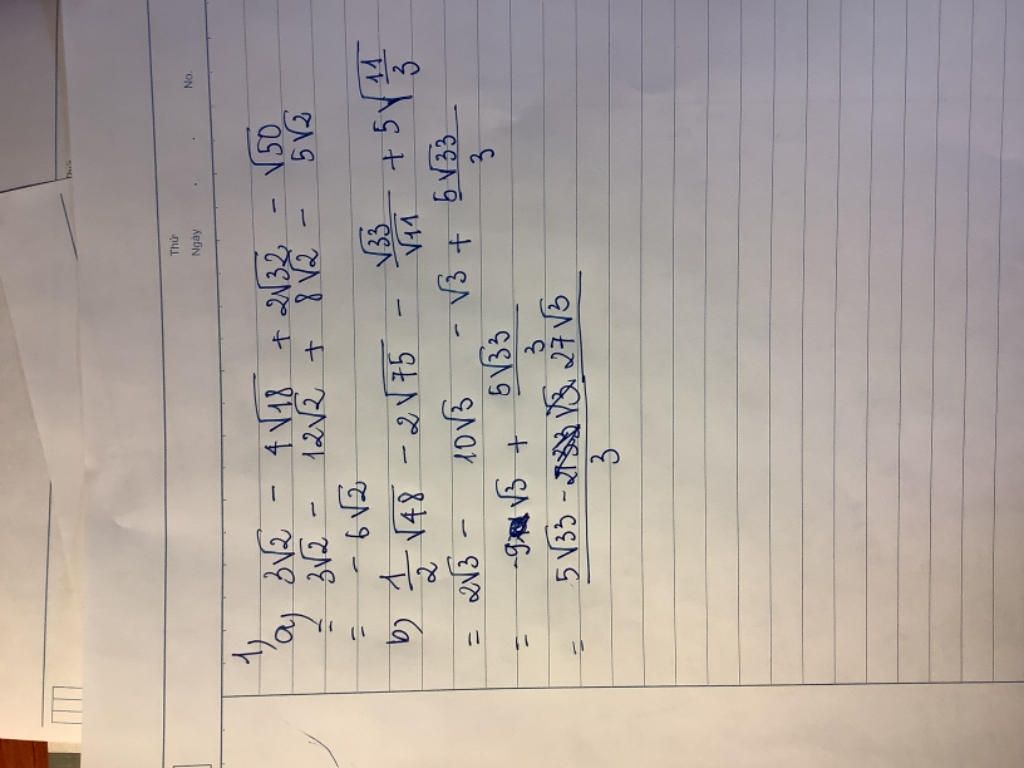 Thứ
Ngày . . No.
1)
a) 3√2 - 4√18 + 2√32 - √50
= 3√2 - 12√2 + 8√2 - 5√2
= - 6√2
b) 1/2 √48 - 2√75 - √33/√11 + 5√(11/3)
= 2√3 - 10√3 - √3 + 5√33/3
= -9√3 + 5√33/3
= (5√33 - 27√3)/3